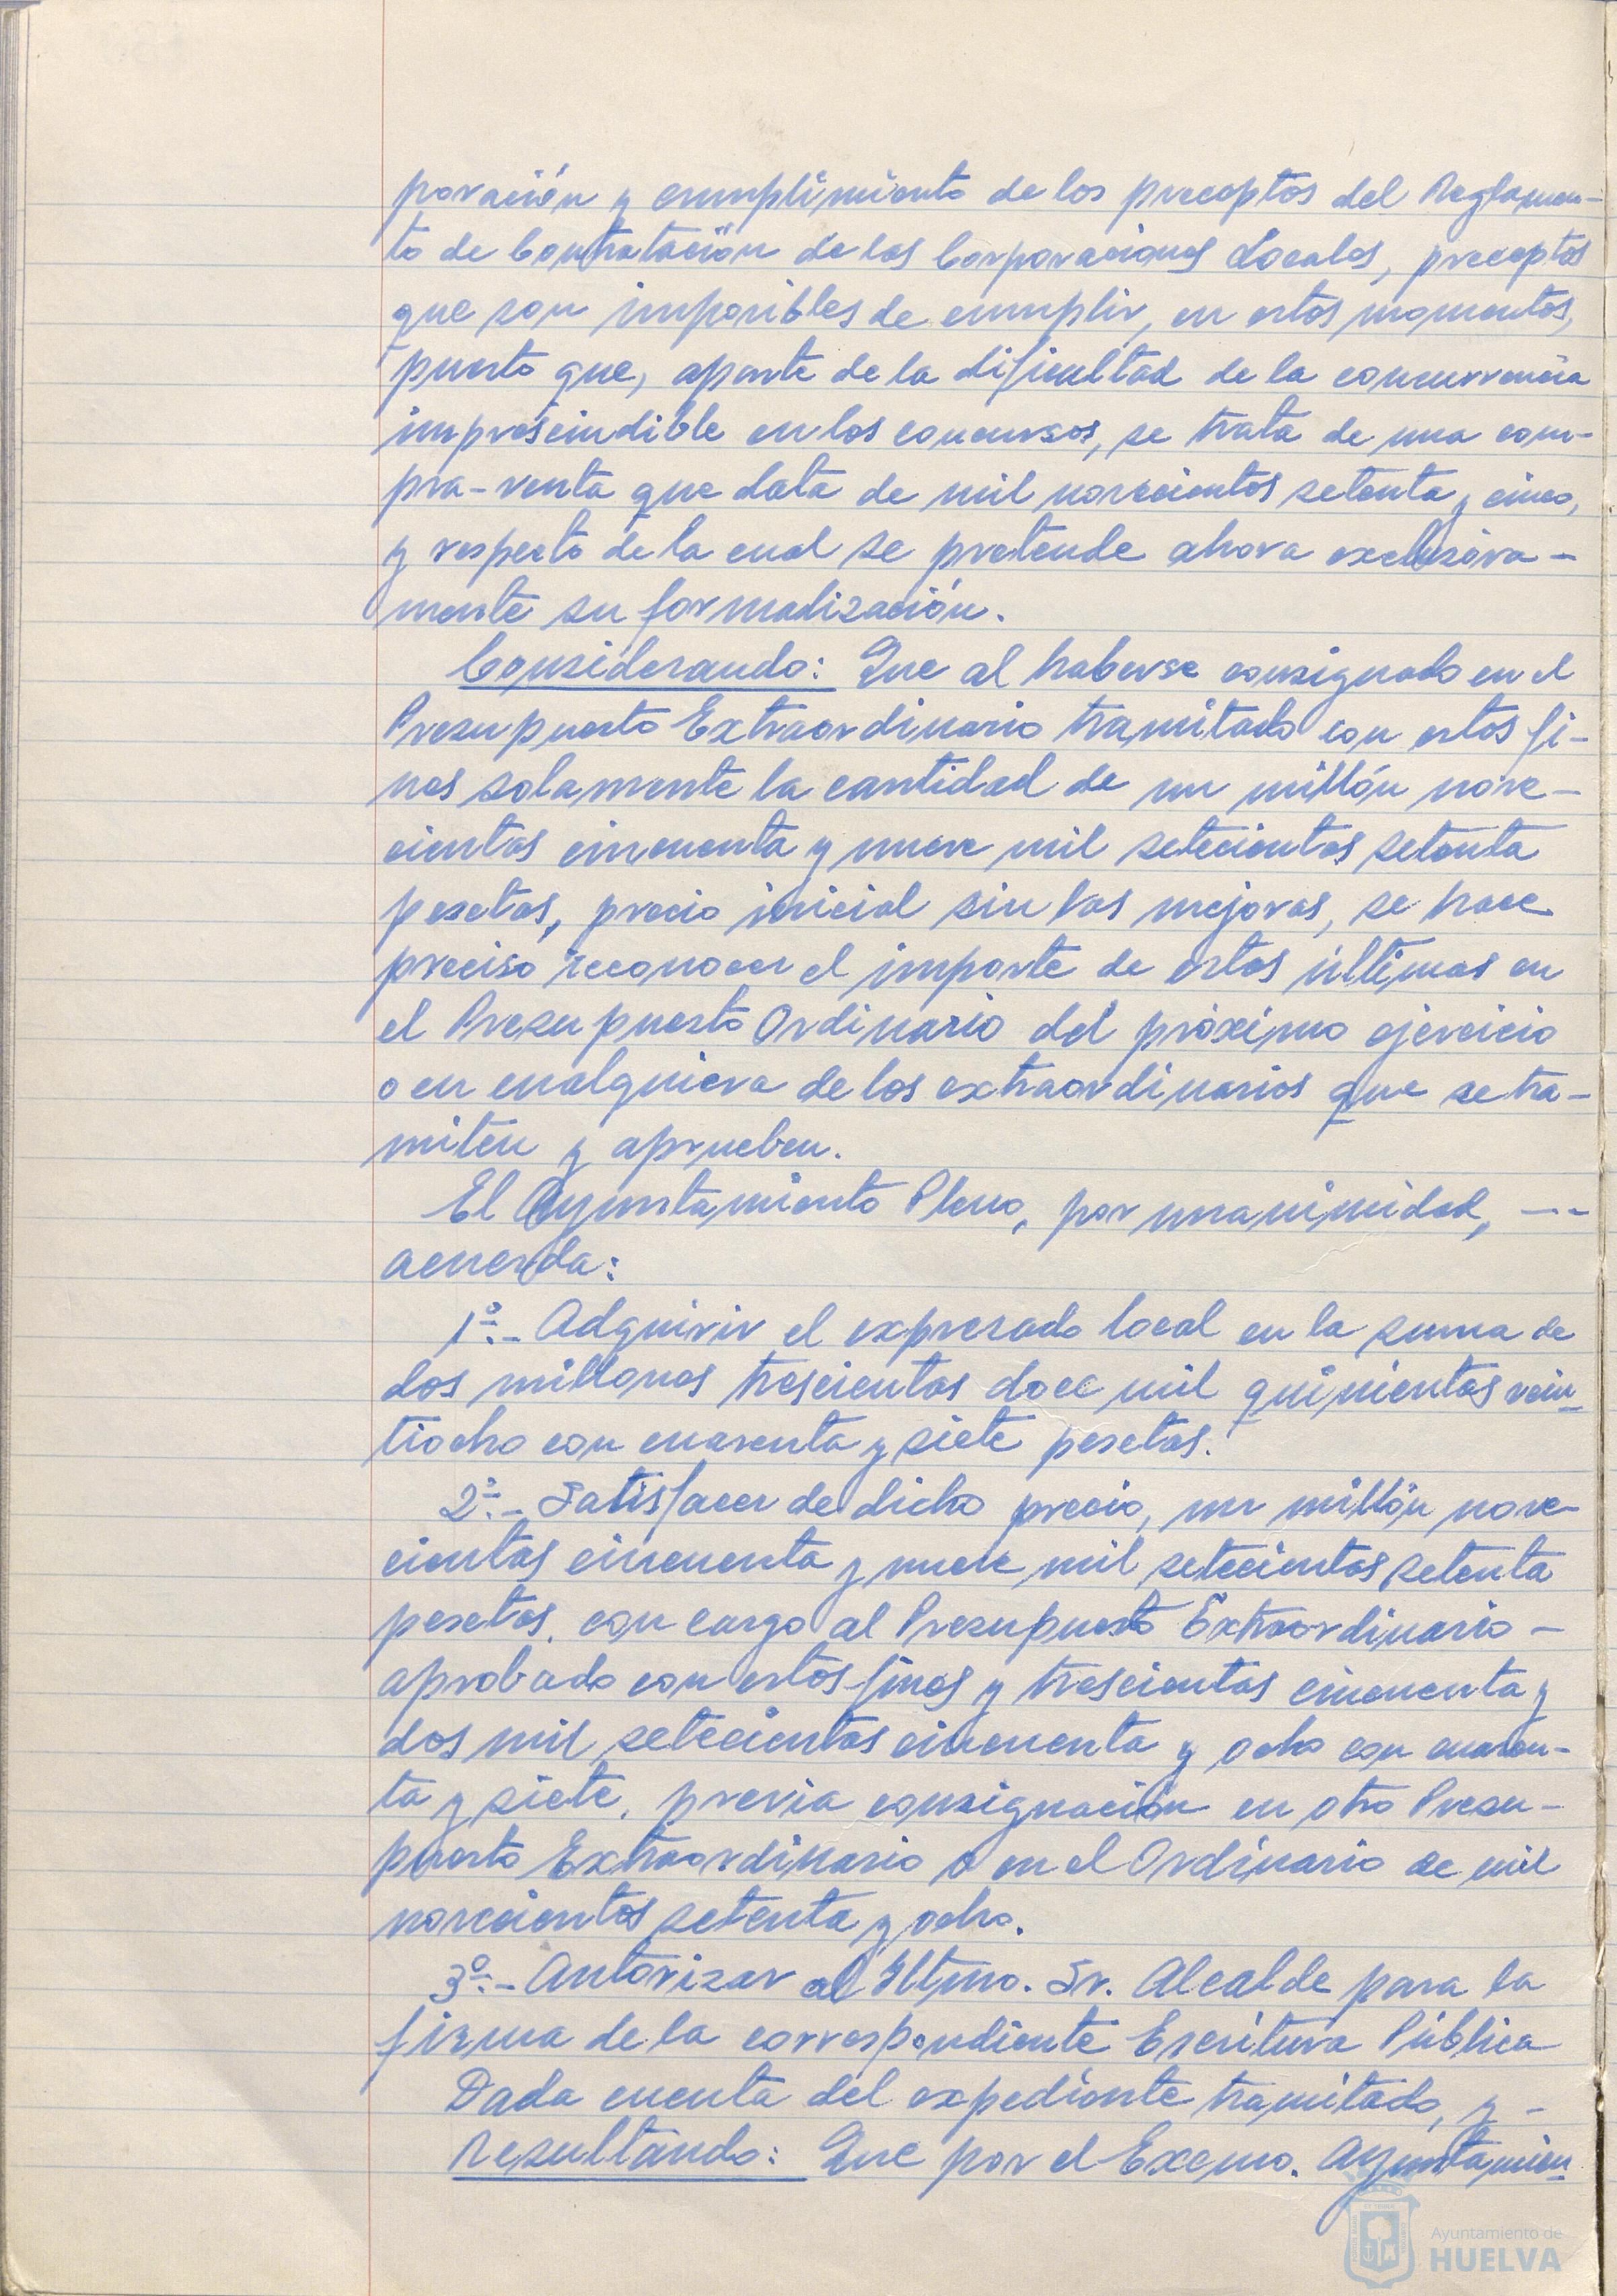 poración y cumplimiento de los preceptos del Reglamen-
to de Contratación de las Corporaciones Locales, preceptos
que son imposibles de cumplir, en estos momentos,
puesto que, aparte de la dificultad de la concurrencia
imprescindible en los concursos, se trata de una com-
pra-venta que data de mil novecientos setenta y cinco,
y respecto de la cual se pretende ahora exclusiva-
mente su formalización.
Considerando: Que al haberse consignado en el
Presupuesto Extraordinario tramitado con estos fi-
nes solamente la cantidad de un millón nove-
cientas cincuenta y nueve mil setecientas setenta
pesetas, precio inicial sin las mejoras, se hace
preciso reconocer el importe de estas últimas en
el Presupuesto Ordinario del próximo ejercicio
o en cualquiera de los extraordinarios que se tra-
miten y aprueben.
El Ayuntamiento Pleno, por unanimidad, --
acuerda:
1º.- Adquirir el expresado local en la suma de
dos millones trescientas doce mil quinientas vein-
tiocho con cuarenta y siete pesetas.
2º.- Satisfacer de dicho precio, un millón nove-
cientas cincuenta y nueve mil setecientas setenta
pesetas, con cargo al Presupuesto Extraordinario -
aprobado con estos fines y trescientas cincuenta y
dos mil setecientas cincuenta y ocho con cuaren-
ta y siete, previa consignación en otro Presu-
puesto Extraordinario o en el Ordinario de mil
novecientos setenta y ocho.
3º.- Autorizar al Iltmo. Sr. Alcalde para la
firma de la correspondiente Escritura Pública
Dada cuenta del expediente tramitado, y -
Resultando: Que por el Excmo. Ayuntamien-
Ayuntamiento de
HUELVA